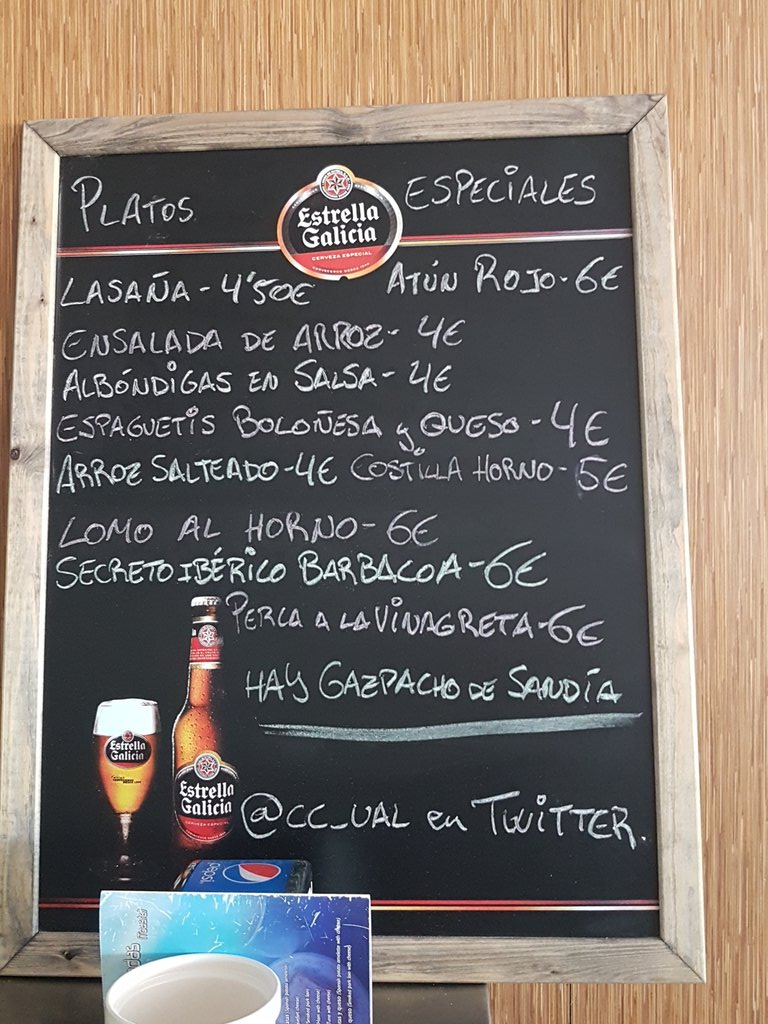 PLATOS ESPECIALES
Estrella Galicia
CERVEZA ESPECIAL
LASAÑA - 4'50€ ATÚN ROJO - 6€
ENSALADA DE ARROZ - 4€
ALBÓNDIGAS EN SALSA - 4€
ESPAGUETIS BOLOÑESA y QUESO - 4€
ARROZ SALTEADO - 4€ COSTILLA HORNO - 5€
LOMO AL HORNO - 6€
SECRETO IBÉRICO BARBACOA - 6€
PERCA A LA VINAGRETA - 6€
HAY GAZPACHO DE SANDÍA
Estrella Galicia
Estrella Galicia
@CC_UAL en TWITTER.
PEPSI